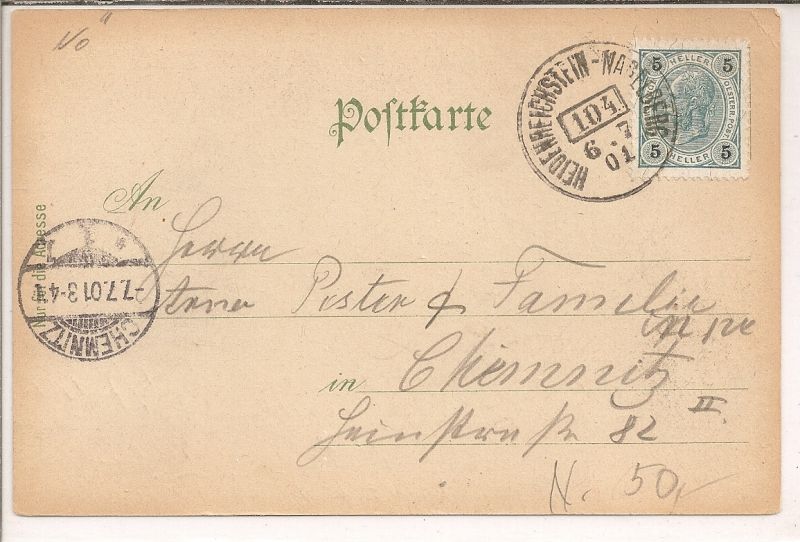 No
Postkarte
HEIDENREICHSTEIN-NAGELBERG
104
6 7
01
5 HELLER 5
OESTERR. POST.
5 HELLER 5
An
Nur für die Adresse
Herrn
Poster & Familie
in Chemnitz
82 II
CHEMNITZ
-7.7.01 3-4
1
N. 50,